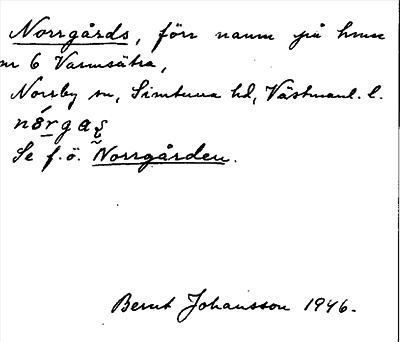 Norrgårds, förr namn på hmn
nr 6 Varmsätra,
Norrby sn, Simtuna hd, Västmanl. l.
Se f. ö. Norrgården.
Bernt Johansson 1946.